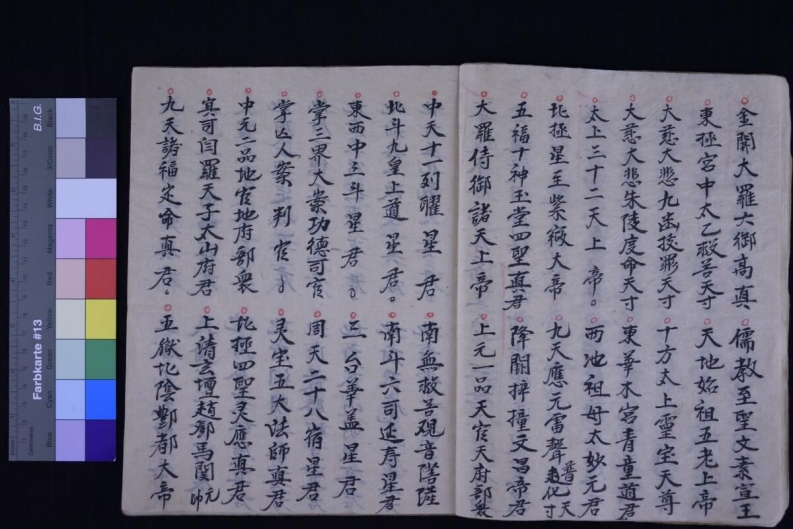 金闕大羅六御高真 儒教至聖文素宣王
東極宮中太乙救苦天寸 天地始祖五老上帝
大慈大悲九幽拔罪天寸 十方太上靈宝天尊
大慈大悲朱陵度命天寸 東華木宮青童道君
太上三十二天上帝。 西池祖母太妙元君
北極星主紫微大帝 九天應元雷聲普化天寸
五福十神玉堂四聖真君 降閙梓撞文昌帝君
大羅侍御諸天上帝 上元一品天官天府部衆
中天十一列曜星君 南無救苦觀音菩薩
北斗九皇上道星君。 南斗六司延寿星君
東西中三斗星君。 三台華盖星君
掌三界大案功德司官 周天二十八宿星君
掌亾人案判官 灵宝五大法師真君
中元二品地官地府部衆 北極四聖灵應真君
真司闫羅天子太山府君 上清玄壇趙鄧馬関元帅
九天諸福定命真君。 五嶽北陰酆都大帝
B.I.G.
Farbkarte #13
Black
3/Color
White
Magenta
Red
Yellow
Green
Cyan
Blue
Centimetres